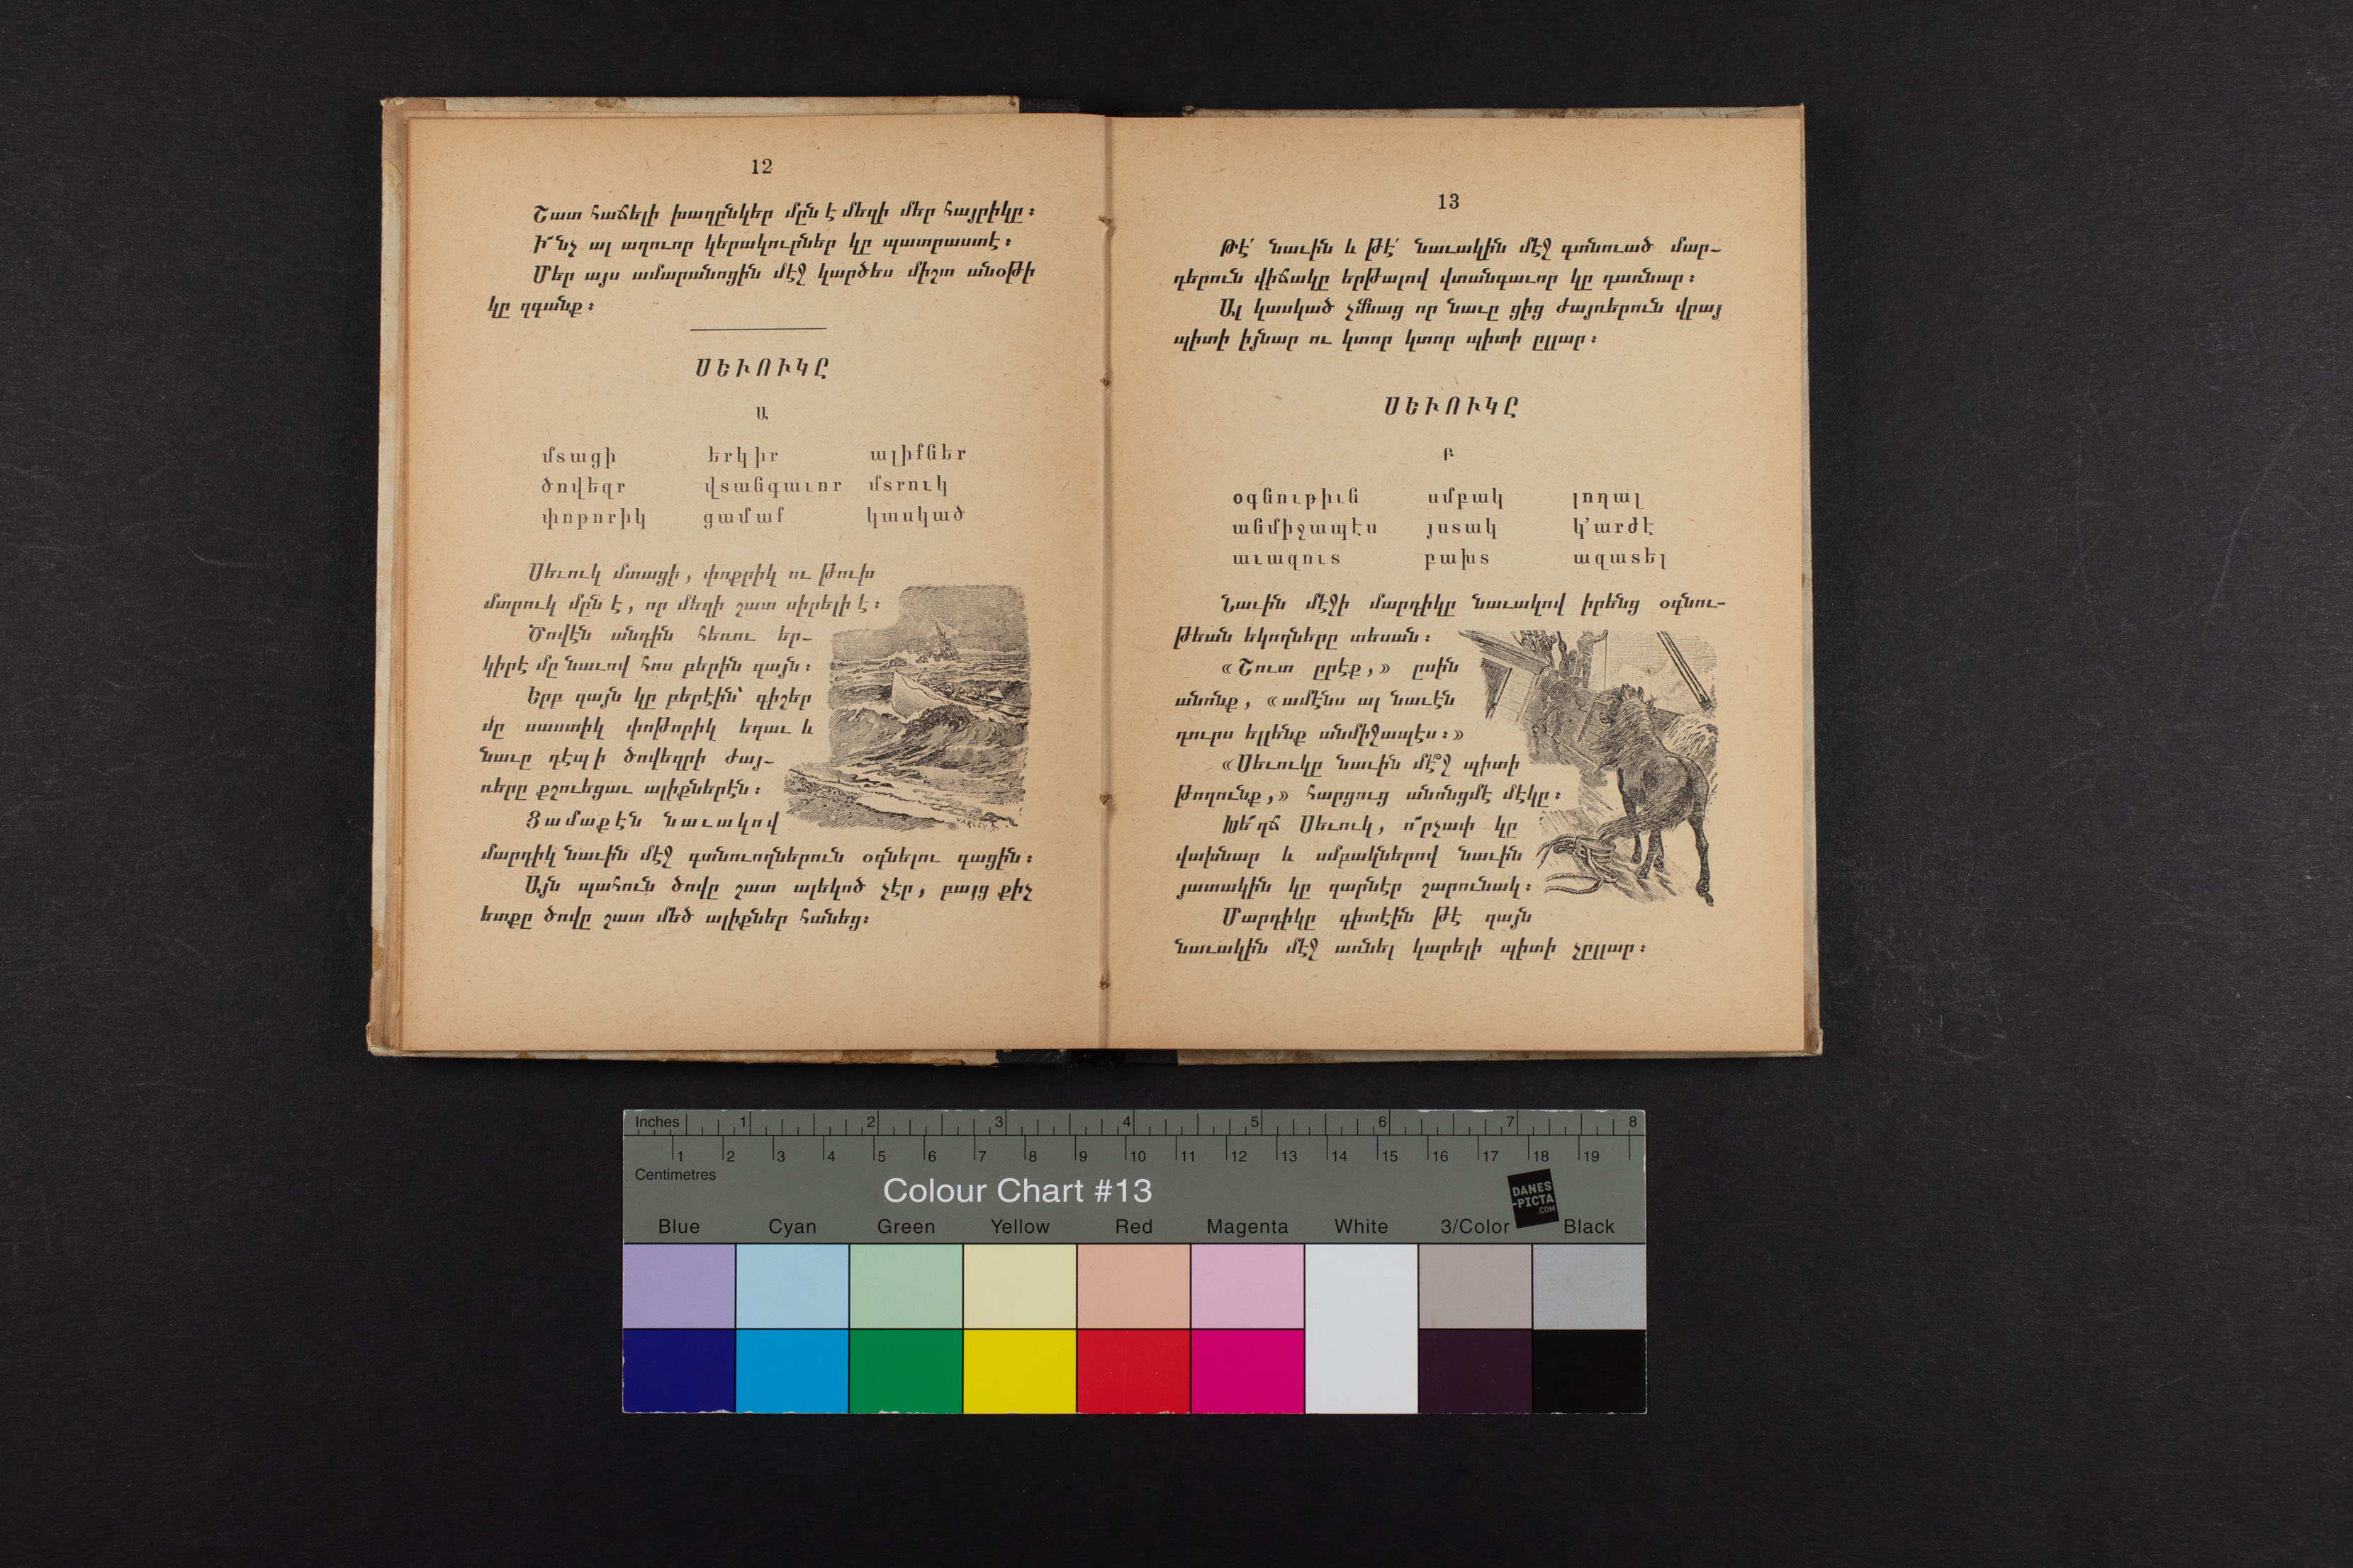 12
Շատ հաճելի խաղընկեր մըն է մեզի մեր հայրիկը։
Ի՜նչ ալ աղուոր կերակուրներ կը պատրաստէ։
Մեր այս ամարանոցին մէջ կարծես միշտ անօթի
կը զգանք։
ՍԵՒՈՒԿԸ
Ա.
մտացի երկիր ալիքներ
ծովեզր վտանգաւոր մտրուկ
փոթորիկ ցամաք կասկած
Սեւուկ մտացի, փոքրիկ ու թուխ
մտրուկ մըն է, որ մեզի շատ սիրելի է։
Ծովէն անդին հեռու եր-
կիրէ մը նաւով հոս բերին զայն։
Երբ զայն կը բերէին՝ գիշեր
մը սաստիկ փոթորիկ եղաւ և
նաւը դէպ ի ծովեզրի ժայ-
ռերը քշուեցաւ ալիքներէն։
Ցամաքէն նաւակով
մարդիկ նաւին մէջ գտնուողներուն օգնելու գացին։
Այն պահուն ծովը շատ ալեկոծ չէր, բայց քիչ
ետքը ծովը շատ մեծ ալիքներ հանեց։
13
Թէ՛ նաւին և թէ՛ նաւակին մէջ գտնուած մար-
դերուն վիճակը երթալով վտանգաւոր կը դառնար։
Ալ կասկած չմնաց որ նաւը ցից ժայռերուն վրայ
պիտի իյնար ու կտոր կտոր պիտի ըլլար։
ՍԵՒՈՒԿԸ
Բ
օգնութիւն սմբակ լողալ
անմիջապէս յստակ կ՚արժէ
աւազուտ բախտ ազատել
Նաւին մէջի մարդիկը նաւակով իրենց օգնու-
թեան եկողները տեսան։
«Շուտ ըրէք,» ըսին
անոնք, «ամէնս ալ նաւէն
դուրս ելլենք անմիջապէս։»
«Սեւուկը նաւին մէ՞ջ պիտի
թողունք,» հարցուց անոնցմէ մէկը։
Խե՜ղճ Սեւուկ, ո՜րչափ կը
վախնար և սմբակներով նաւին
յատակին կը զարնէր շարունակ։
Մարդիկը գիտէին թէ զայն
նաւակին մէջ առնել կարելի պիտի չըլլար։
Inches 1 2 3 4 5 6 7 8
1 2 3 4 5 6 7 8 9 10 11 12 13 14 15 16 17 18 19
Centimetres
Colour Chart #13
DANES
-PICTA
.COM
Blue Cyan Green Yellow Red Magenta White 3/Color Black